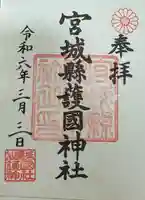 奉拝
宮城縣護國神社
令和六年三月三日